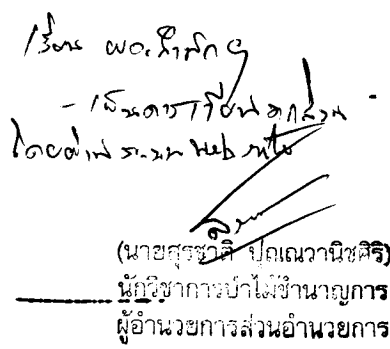 เรียน ผอ.สำนัก
- เห็นควรเวียนทุกส่วน
โดยผ่านระบบ Web
(นายสุรชาติ ปุณณวานิชศิริ)
นักวิชาการป่าไม้ชำนาญการ
ผู้อำนวยการส่วนอำนวยการ